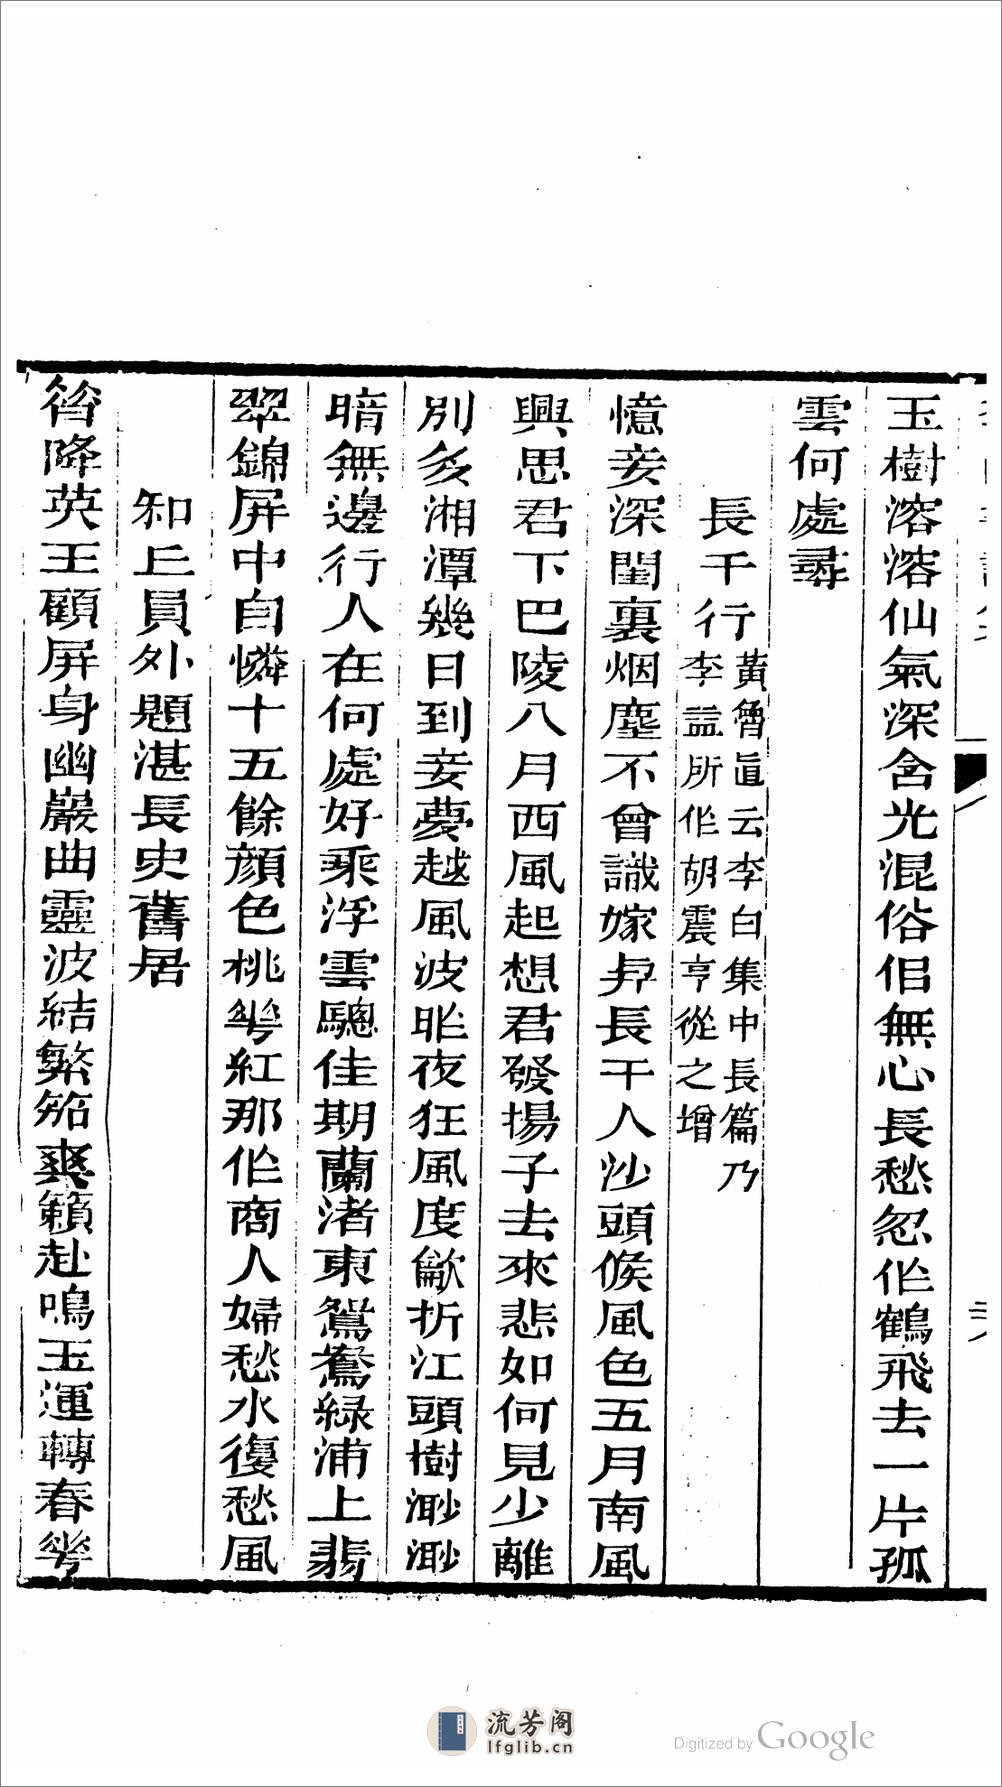 玉樹溶溶仙氣深含光混俗佀無心長愁忽作鶴飛去一片孤
雲何處尋
長干行
黃魯直云李白集中長篇乃
李益所作胡震亨從之增
憶妾深閨裏烟塵不曾識嫁与長干人沙頭候風色五月南風
興思君下巴陵八月西風起想君發揚子去來悲如何見少離
別多湘潭幾日到妾夢越風波昨夜狂風度歙折江頭樹渺渺
暗無邊行人在何處好乘浮雲驄佳期蘭渚東鴛鴦綠浦上翡
翠錦屏中自憐十五餘顏色桃花紅那作商人婦愁水復愁風
和丘員外題湛長史舊居
昔降英王顧屏身幽巖曲靈波結繁笳爽籟赴鳴玉運轉春花
流芳阁
lfglib.cn
Digitized by Google